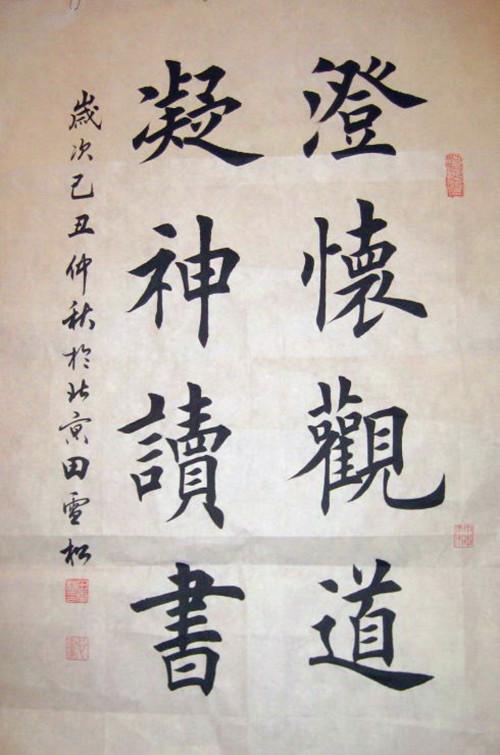 澄懷觀道
凝神讀書
歲次己丑仲秋於北京田雪松